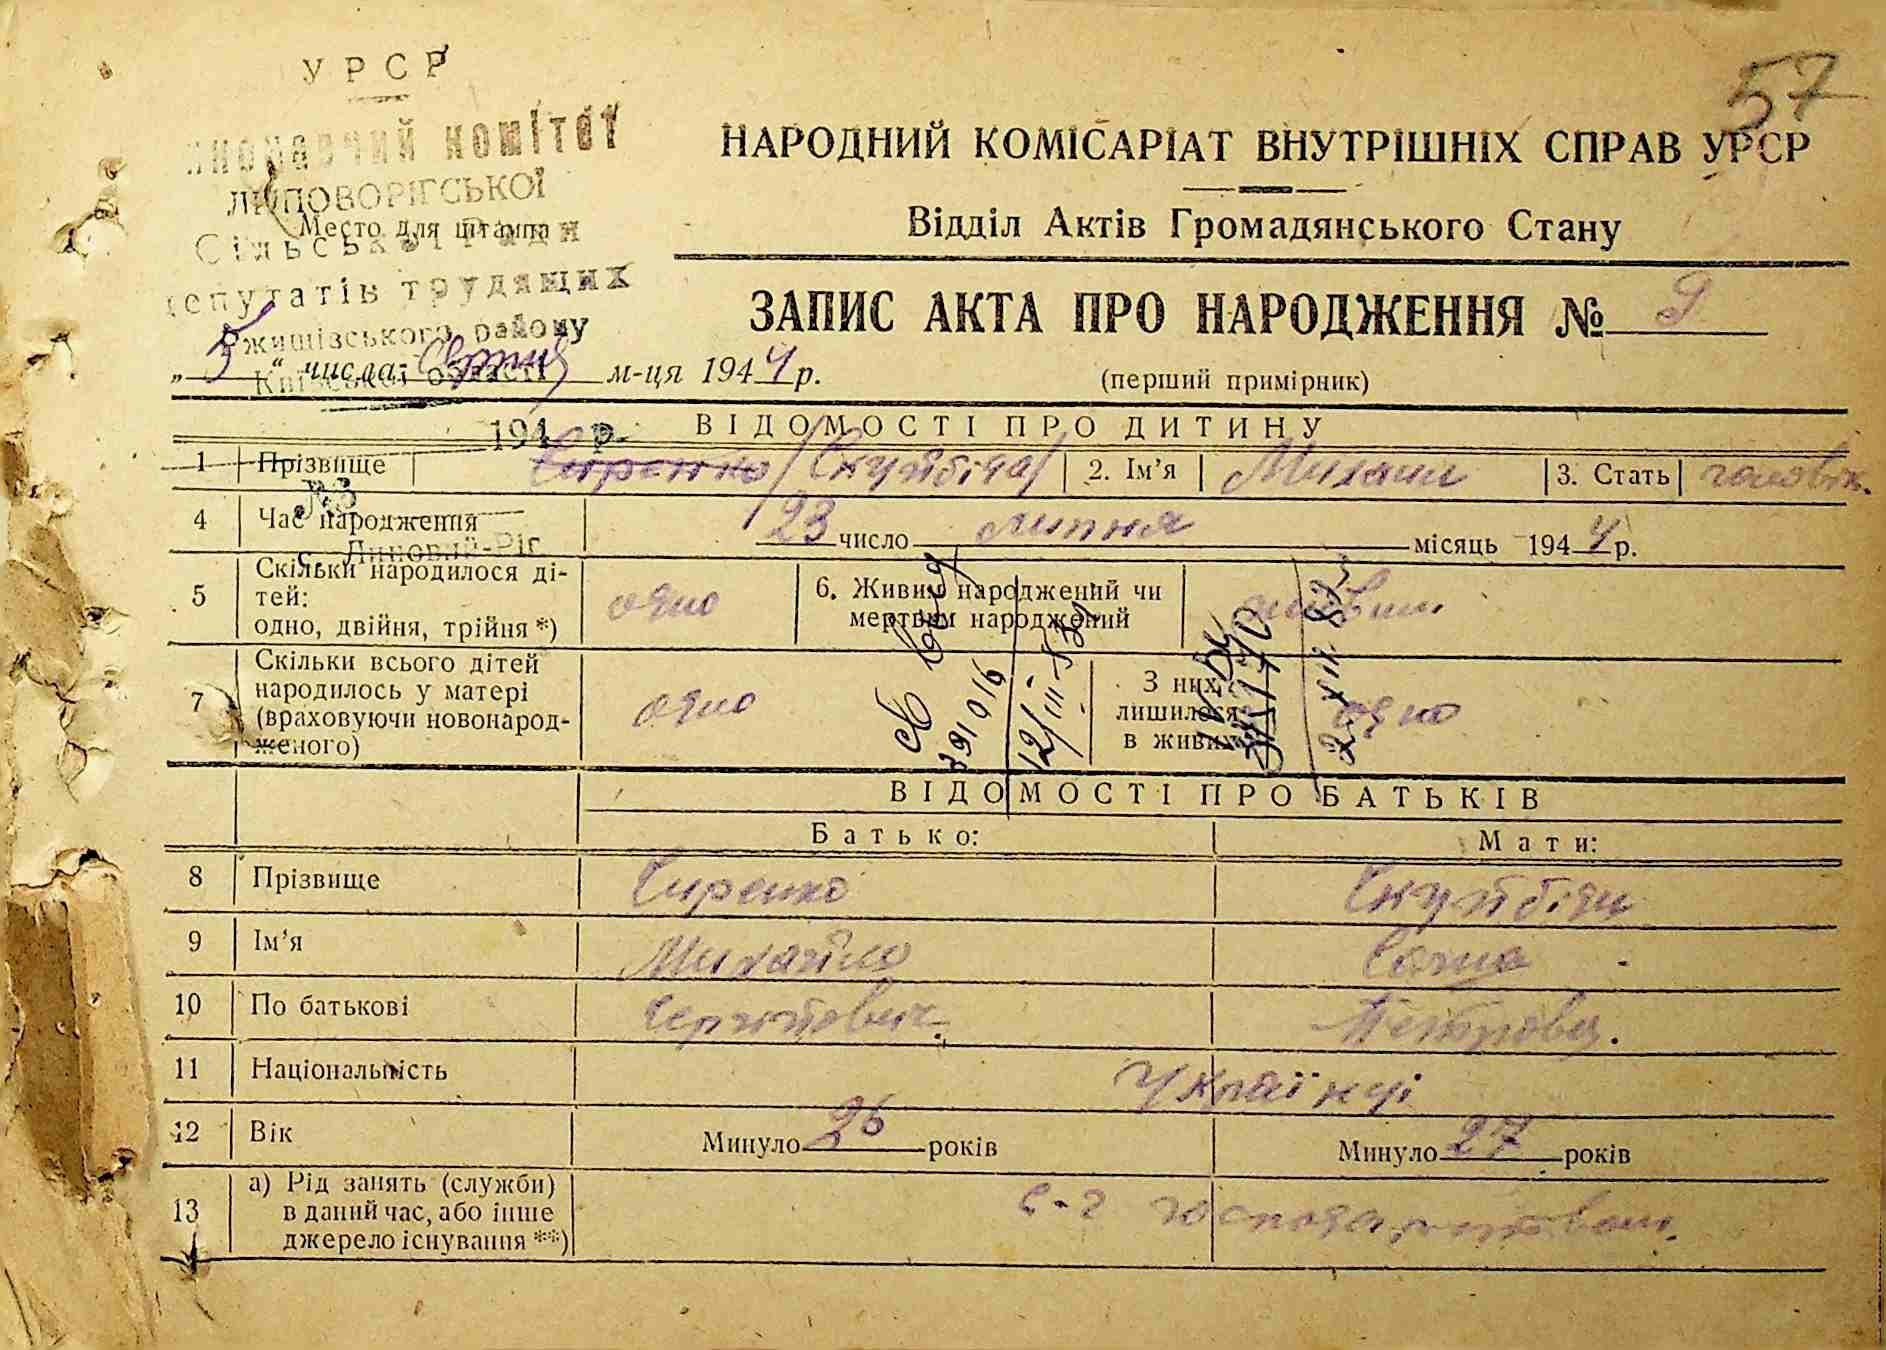 57
УРСР
комітет
ЛИПОВОРІГСЬКОЇ
Место для штампа
Сільської Ради
депутатів трудящих
Ржищівського району
Київської області
194 р.
№3
с. Липовий-Ріг
НАРОДНИЙ КОМІСАРІАТ ВНУТРІШНІХ СПРАВ УРСР
Відділ Актів Громадянського Стану
ЗАПИС АКТА ПРО НАРОДЖЕННЯ № 9
„5“ числа Серпня м-ця 1944 р.
(перший примірник)
ВІДОМОСТІ ПРО ДИТИНУ
1 Прізвище Сиренко /Скуйбіда/ 2. Ім’я Михаил 3. Стать чоловіч.
4 Час народження 23 число липня місяць 1944 р.
5 Скільки народилося ді-
тей:
одно, двійня, трійня *) одно
6. Живим народжений чи
мертвим народжений живим
7 Скільки всього дітей
народилось у матері
(враховуючи новонарод-
женого) одно
З них
лишилося
в живих одно
391016
12/III-
ВІДОМОСТІ ПРО БАТЬКІВ
Батько: Мати:
8 Прізвище Сиренко Скуйбіда
9 Ім’я Михайло
10 По батькові Сергійович. Петровна.
11 Національність Українці
12 Вік Минуло 26 років Минуло 27 років
13 а) Рід занять (служби)
в даний час, або інше
джерело існування **) с-г